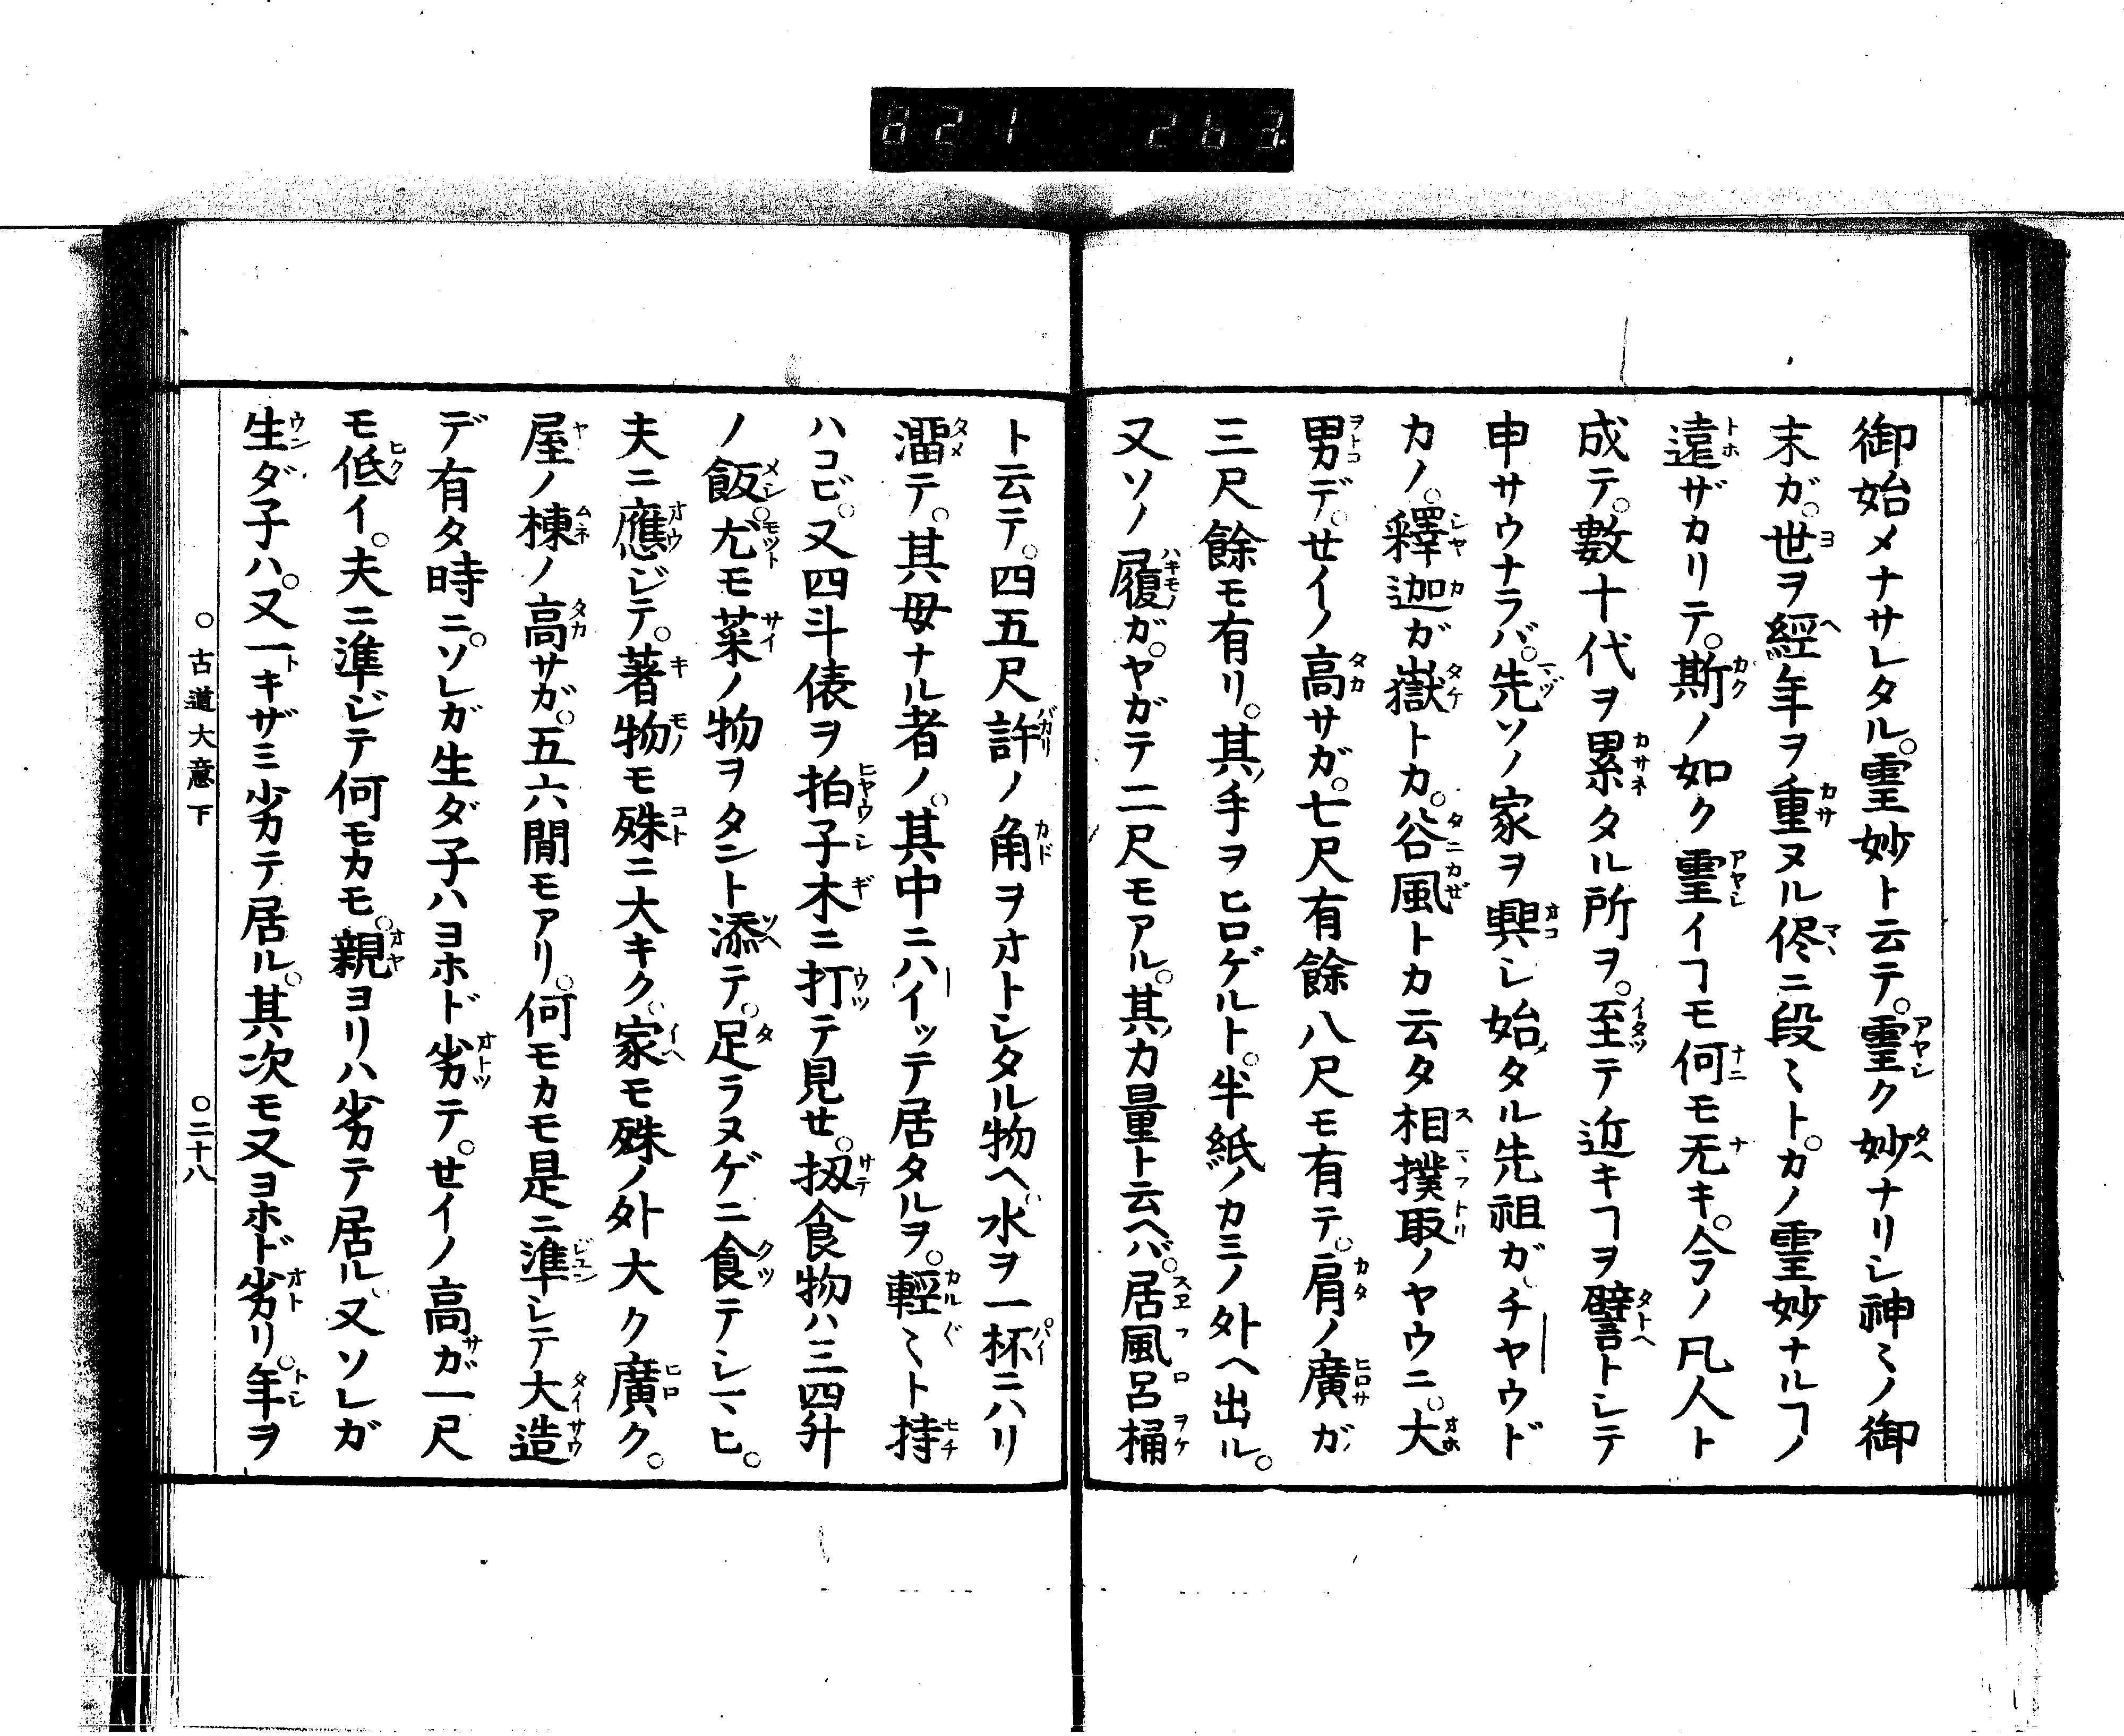 821 263
御始メナサレタル。霊妙ト云テ。霊ク妙ナリシ神〻ノ御
末ガ。世ヲ經年ヲ重ヌル侭ニ段〻ト。カノ霊妙ナルヿノ
遠ザカリテ。斯ノ如ク霊イヿモ何モ无キ。今ノ凡人ト
成テ。數十代ヲ累タル所ヲ。至テ近キヿヲ譬トシテ
申サウナラバ。先ソノ家ヲ興シ始タル先祖ガ。チヤウド
カノ。釋迦ガ嶽トカ。谷風トカ云タ相撲取ノヤウニ。大
男デ。セイノ高サガ。七尺有餘八尺モ有テ。肩ノ廣ガ
三尺餘モ有リ。其手ヲヒロゲルト。半紙ノカミノ外ヘ出ル。
又ソノ履ガ。ヤガテ二尺モアル。其力量ト云ヘバ。居風呂桶
ト云テ。四五尺許ノ角ヲオトシタル物ヘ。水ヲ一杯ニハリ
溜テ。其母ナル者ノ。其中ニハイッテ居タルヲ。輕〻ト持
ハコビ。又四斗俵ヲ拍子木ニ打テ見せ。扨食物ハ三四升
ノ飯。尤モ菜ノ物ヲタント添テ。足ラヌゲニ食テシマヒ。
夫ニ應ジテ。著物モ殊ニ大キク。家モ殊ノ外大ク廣ク。
屋ノ棟ノ高サガ。五六間モアリ。何モカモ是ニ準シテ大造
デ有タ時ニ。ソレガ生ダ子ハヨホド劣テ。セイノ高ガ一尺
モ低イ。夫ニ準ジテ何モカモ。親ヨリハ劣テ居ル。又ソレガ
生ダ子ハ。又一キザミ劣テ居ル。其次モ又ヨホド劣リ。年ヲ
○古道大意下 ○二十八